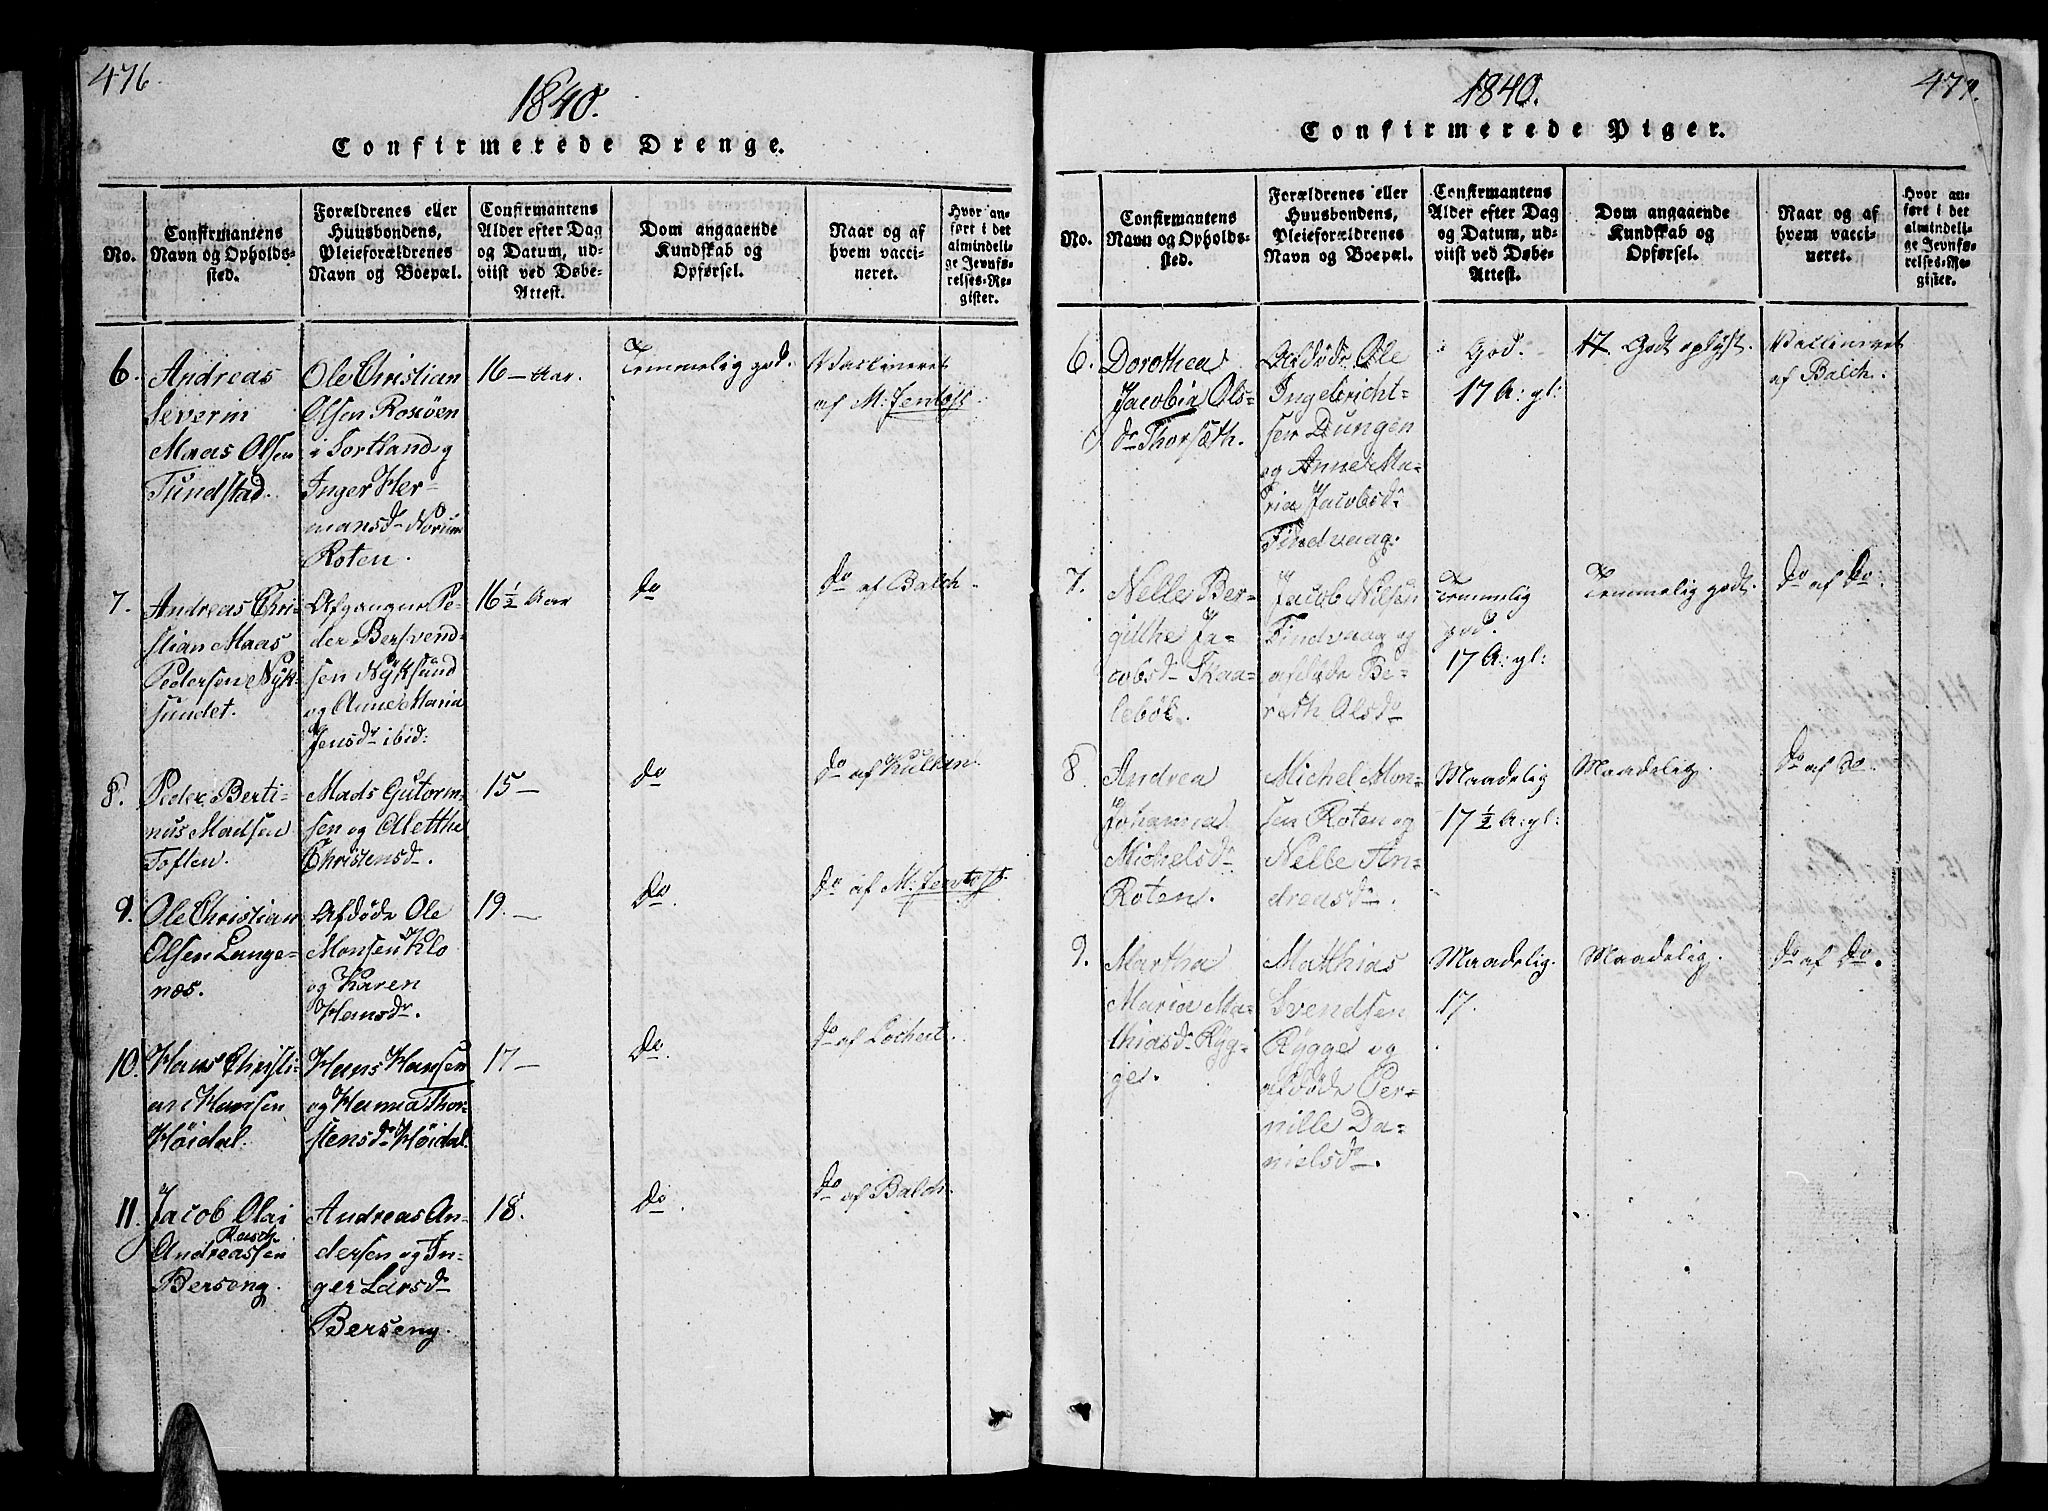 476
1840.
Confirmerede Drenge.
No.
Confirmantens
Navn og Opholds-
sted.
Forældrenes eller
Huusbondens,
Pleieforældrenes
Navn og Boepæl.
Confirmantens
Alder efter Dag
og Datum, ud-
viist ved Døbe-
Attest.
Dom angaaende
Kundskab og
Opførsel.
Naar og af
hvem vacci-
neret.
Hvor an-
ført i det
almindeli-
ge Jevnfø-
relses-Re-
gister.
6.
Andreas
Severin
Maas Olsen
Tundstad.
Ole Christian
Olsen
i Sortland og
Inger Her-
mansdr
Roten.
16 — Aar.
Temmelig god.
Vaccineret
af M:
7.
Andreas Chri-
stian Maas
Pedersen Nyk-
sundet.
Afgangne Pe-
der Bersvend-
sen Nyksund
og Anne Maria
Jensdr ibid:
16 ½ Aar
Do
Do af Balch.
8.
Peder Berti-
nus Madsen
Toften.
Mads Gutorm-
sen og Alethe
Christensdr.
15 —
Do
Do af
9.
Ole Christian
Olsen Lange-
næs.
Afdøde Ole
Monsen Klo
og Karen
Hansdr.
19. —
Do.
Do af M:
10.
Hans Christi-
an Hansen
Høidal.
Hans Hansen
og Hanna Thor-
stensdr Høidal.
17 —
Do.
Do af Lochert.
11.
Jacob Olai
Rasch
Andreassen
Berseng.
Andreas An-
dersen og In-
ger Larsdr
Berseng.
18.
Do.
Do af Balch.
477.
1840.
Confirmerede Piger.
No.
Confirmantens
Navn og Opholds-
sted.
Forældrenes eller
Huusbondens,
Pleieforældrenes
Navn og Boepæl.
Confirmantens
Alder efter Dag
og Datum, ud-
viist ved Døbe-
Attest.
Dom angaaende
Kundskab og
Opførsel.
Naar og af
hvem vacci-
neret.
Hvor an-
ført i det
almindeli-
ge Jevnfø-
relses-Re-
gister.
6.
Dorothea
Jacobin Ols-
dr Thorsæth.
Afdøde Ole
Ingebricht-
sen Dungen
og Anne Ma-
ria Jacobsdr
Findvaag.
God.
17 A: gl:
17 Godt oplyst.
Vaccineret
af Balch.
7.
Nelle Ber-
githe Ja-
cobsdr Skaa-
lebøl.
Jacob Nilsen
Findvaag og
afdøde Be-
reth Olsdr
Temmelig
god.
17 A: gl:
Temmelig godt.
Do af Do.
8
Andrea
Johanna
Michelsdr
Roten.
Michel Mon-
sen Roten og
Nelle An-
dreasdr.
Maadelig
17 ½ A: gl:
Maadelig.
Do af Do.
9.
Martha
Maria Ma-
thiasdr Ryg-
ge.
Matthias
Svendsen
Rygge og
afdøde Per-
nille Da-
nielsdr.
Maadelig.
17.
Maadelig.
Do af Do.